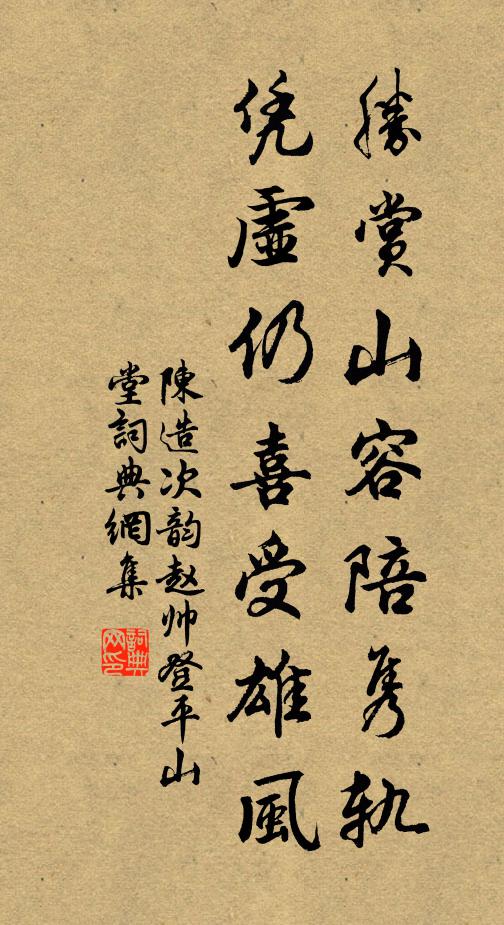 勝賞山容陪隽軌
凭虛仍喜受雄風
陳造次韵赵帅登平山
堂詞典網集
詞典
网印